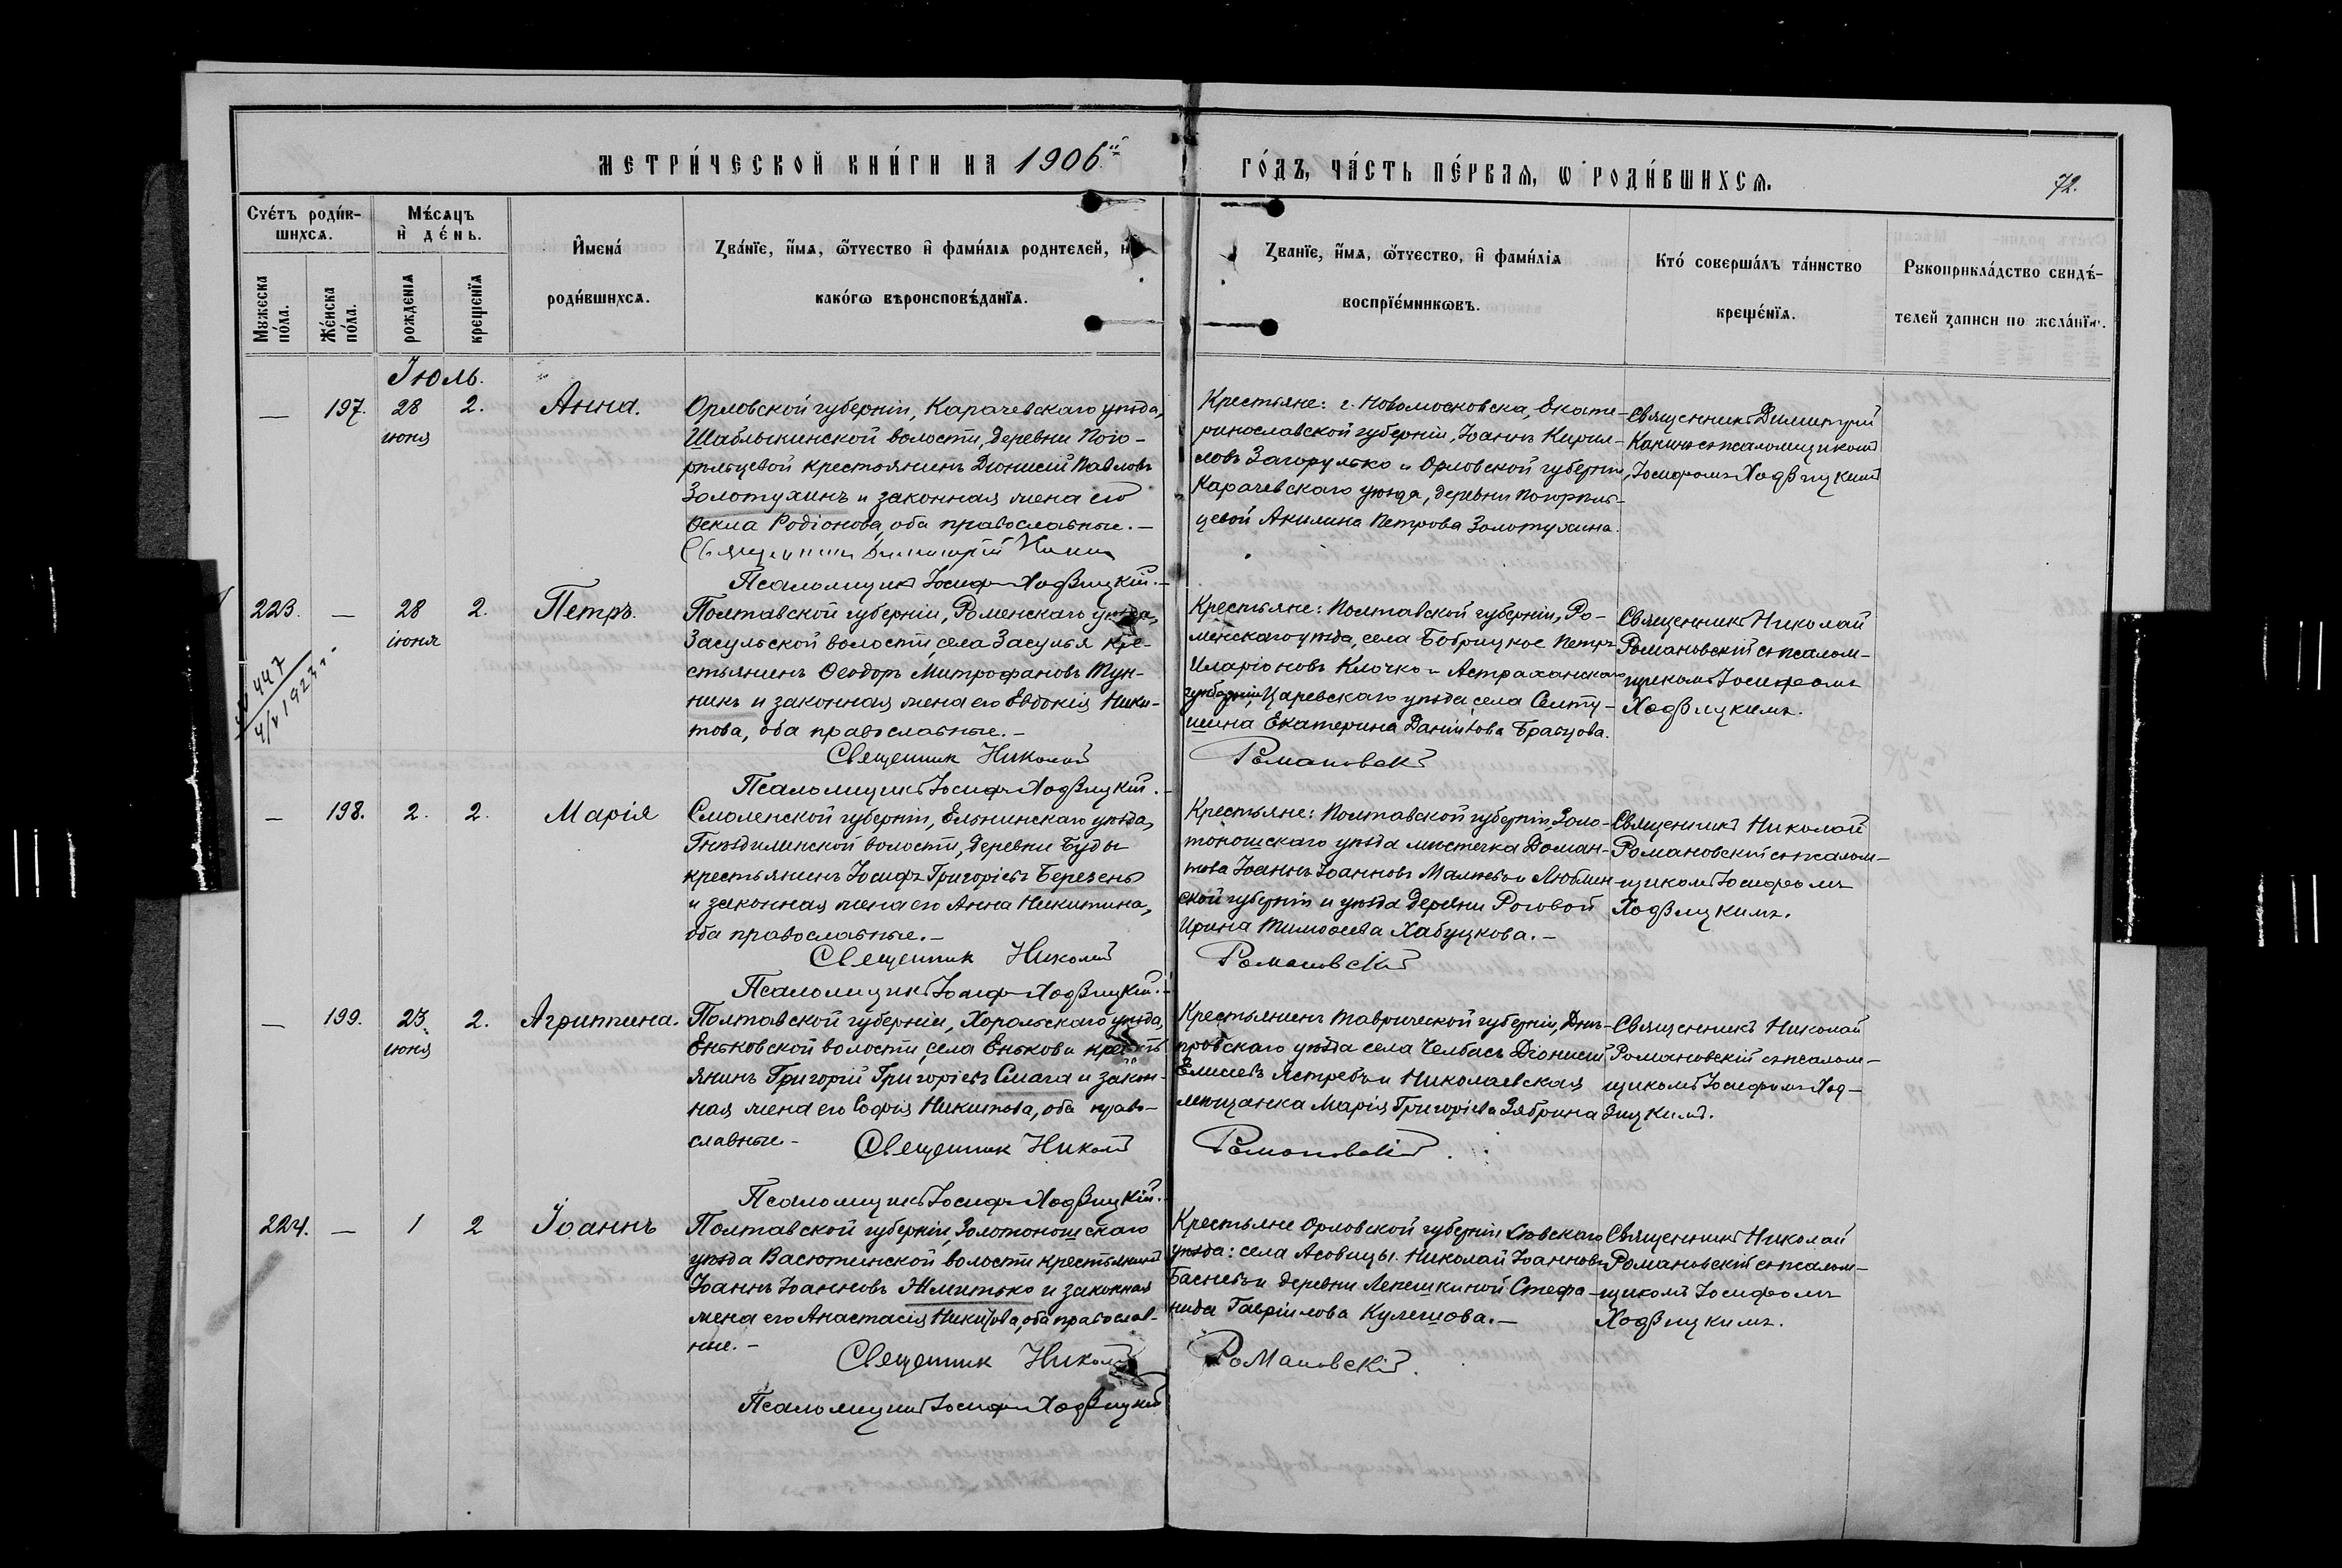 МЕТРИ́ЧЕСКОЙ КНИ́ГИ НА 1906й
ГО́ДЪ, ЧА́СТЬ ПЕ́РВАѦ, Ѡ РОДИ́ВШИХСѦ.
72.
Сче́тъ роди́в-
шихсѧ.
Му́жеска по́ла.
Же́нска по́ла.
Мѣ́сѧцъ
и҆ де́нь.
рожденїѧ
крещенїѧ
И҆мена́
роди́вшихсѧ.
Зва́нїе, и҆́мѧ, ѻ҆́тчество и҆ фами́лїѧ родителей, и
како́гѡ вѣроисповѣ́данїѧ.
Зва́нїе, и҆́мѧ, ѻ҆́тчество, и҆ фами́лїѧ
воспрїе́мникѡвъ.
Кто́ соверша́лъ та́инство
креще́нїѧ.
Рꙋкоприкла́дство свидѣ́-
телей записи по жела́нїю.
Іюль.
— 197. 28 2. Анна.
іюня
Орловской губерніи, Карачевскаго уѣзда,
Шаблыкинской волости, деревни Пого-
рѣльцевой крестьянинъ Діонисій Павловъ
Золотухинъ и законная жена его
Ѳекла Родіонова, оба православные.—
Священникъ Димитрій
Псаломщикъ Іосифъ Ходзицкій.—
Крестьяне: г. Новомосковска, Екате-
ринославской губерніи, Іоаннъ Кирил-
ловъ Загорулько и Орловской губерніи,
Карачевскаго уѣзда, деревни Погорѣль-
цевой Акилина Петрова Золотухина.
Священникъ Димитрій
съ псаломщикомъ
Іосифомъ Ходзицкимъ
223. — 28 2. Петръ.
іюня
447
4/V 1923 г.
Полтавской губерніи, Роменскаго уѣзда,
Засульской волости, села Засулья кре-
стьянинъ Ѳеодоръ Митрофановъ Тун-
никъ и законная жена его Евдокія Ники-
това, оба православные.—
Священник Николай
Псаломщикъ Іосифъ Ходзицкій.
Крестьяне: Полтавской губерніи, Ро-
менскаго уѣзда, села Бобрицкое Петръ
Иларіоновъ Клочко и Астраханской
губерніи, Царевскаго уѣзда села
Екатерина Даніилова
Романовскій
Священникъ Николай
Романовскій съ псалом-
щикомъ Іосифомъ
Ходзицкимъ.
— 198. 2. 2. Марія
Смоленской губерніи, Ельнинскаго уѣзда,
Гнѣздилинской волости, деревни Буды
крестьянинъ Іосифъ Григорьевъ Березень
и законная жена его Анна Никитина,
оба православные.—
Священник Николай
Псаломщикъ Іосифъ Ходзицкій.
Крестьяне: Полтавской губерніи, Золо-
тоношскаго уѣзда мѣстечка Доман-
това Іоаннъ Іоанновъ и Люблин-
ской губерніи и уѣзда деревни Роговой
Ирина Тимоѳеева Хабуцкова.—
Романовскій
Священникъ Николай
Романовскій съ псалом-
щикомъ Іосифомъ
Ходзицкимъ.
— 199. 23. 2. Агриппина.
іюня
Полтавской губерніи, Хорольскаго уѣзда,
Еньковской волости, села Енькова кресть-
янинъ Григорій Григорьевъ Смага и закон-
ная жена его Софія Никитова, оба право-
славные.— Священник Николай
Псаломщикъ Іосифъ Ходзицкій.
Крестьянинъ Таврической губерніи, Днѣ-
провскаго уѣзда села Челбасъ Діонисій
Елисеевъ Ястребъ и Николаевская
мѣщанка Марія Григорьева Зябрина
Романовскій.
Священникъ Николай
Романовскій съ псалом-
щикомъ Іосифомъ Ход-
зицкимъ.
224. — 1 2 Іоаннъ
Полтавской губерніи, Золотоношскаго
уѣзда Васютинской волости крестьянинъ
Іоаннъ Іоанновъ Жмитько и законная
жена его Анастасія Никитова, оба православ-
ные.—
Священник Николай
Псаломщикъ Іосифъ Ходзицкій
Крестьяне Орловской губерніи Сѣвскаго
уѣзда: села Асовицы. Николай Іоанновъ
Басневъ и деревни Лепешкиной Стефа-
нида Гавріилова Кулешова.—
Романовскій.
Священникъ Николай
Романовскій съ псалом-
щикомъ Іосифомъ
Ходзицкимъ.